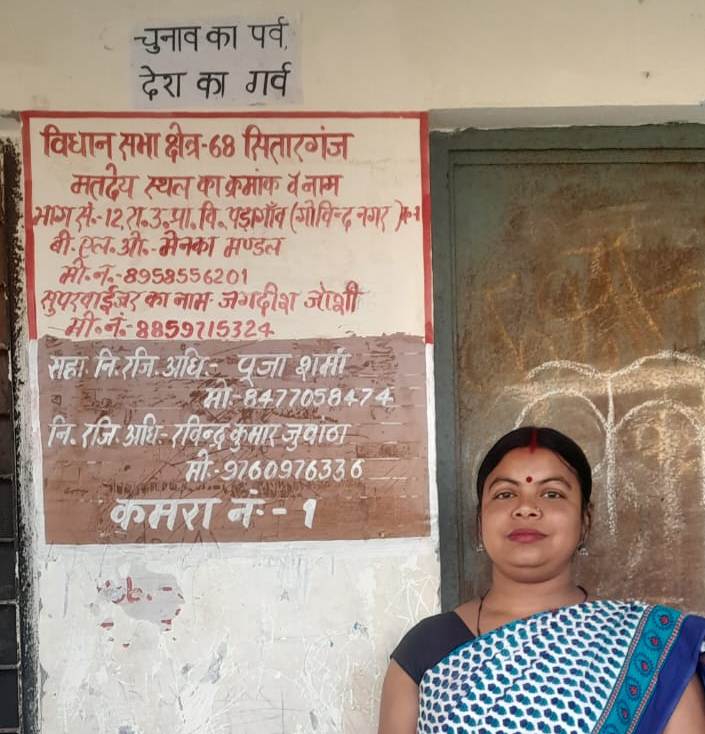 चुनाव का पर्व,
देश का गर्व
विधान सभा क्षेत्र-68 सितारगंज
मतदेय स्थल का क्रमांक व नाम
भाग सं.-12.रा.उ.प्रा.वि.पड़ागाँव (गोविन्द नगर)
बी.एल.ओ.- मेनका मण्डल
मो.नं.-8958556201
सुपरवाईजर का नाम- जगदीश जोशी
मो.नं.-8859715324
सहा.नि.रजि.अधि.- पूजा शर्मा
मो.-8477058474
नि.रजि.अधि.-रविन्द्र कुमार जुवांठा
मो.-9760976336
कमरा नं.-1